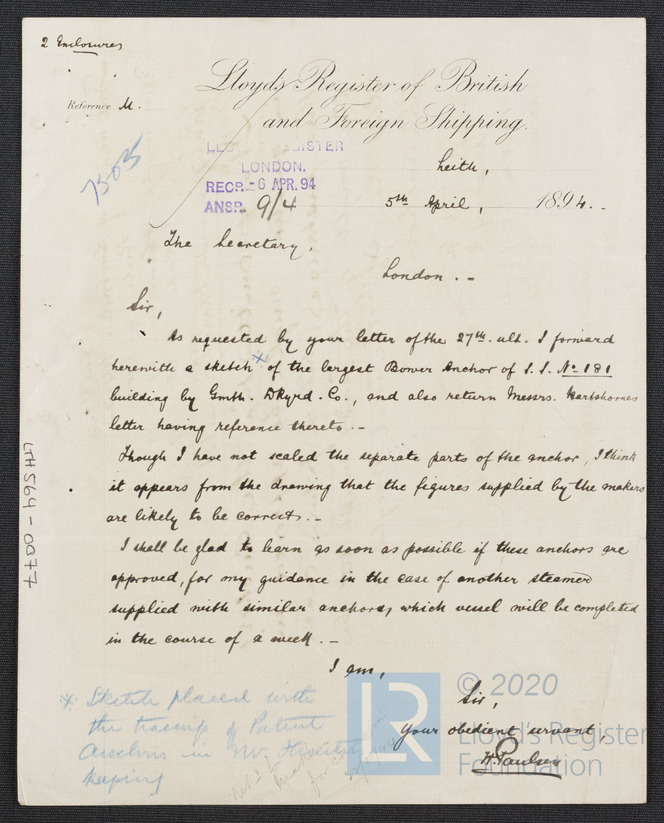 2 Enclosures
Lloyd's Register of British
and Foreign Shipping.
Reference M.
7503
LONDON.
RECD. - 6 APR. 94
ANSD. 9/4
Leith,
5th April, 1894.-
The Secretary,
London.-
Sir,
As requested by your letter of the 27th. ult. I forward
herewith a sketch * of the largest Bower Anchor of S.S. No. 181
building by Gmth. Dkyrd. Co., and also return Messrs. Hartshornes
letter having reference thereto.-
Though I have not scaled the separate parts of the anchor, I think
it appears from the drawing that the figures supplied by the makers
are likely to be correct.-
I shall be glad to learn as soon as possible if these anchors are
approved, for my guidance in the case of another steamer
supplied with similar anchors, which vessel will be completed
in the course of a week.-
I am,
Sir,
Your obedient servant,
H. Paulsen
* Sketch placed with
the tracings of Patent
Anchors in Mr.
keeping
LTH564-0077
LR
© 2020
Lloyd's Register
Foundation